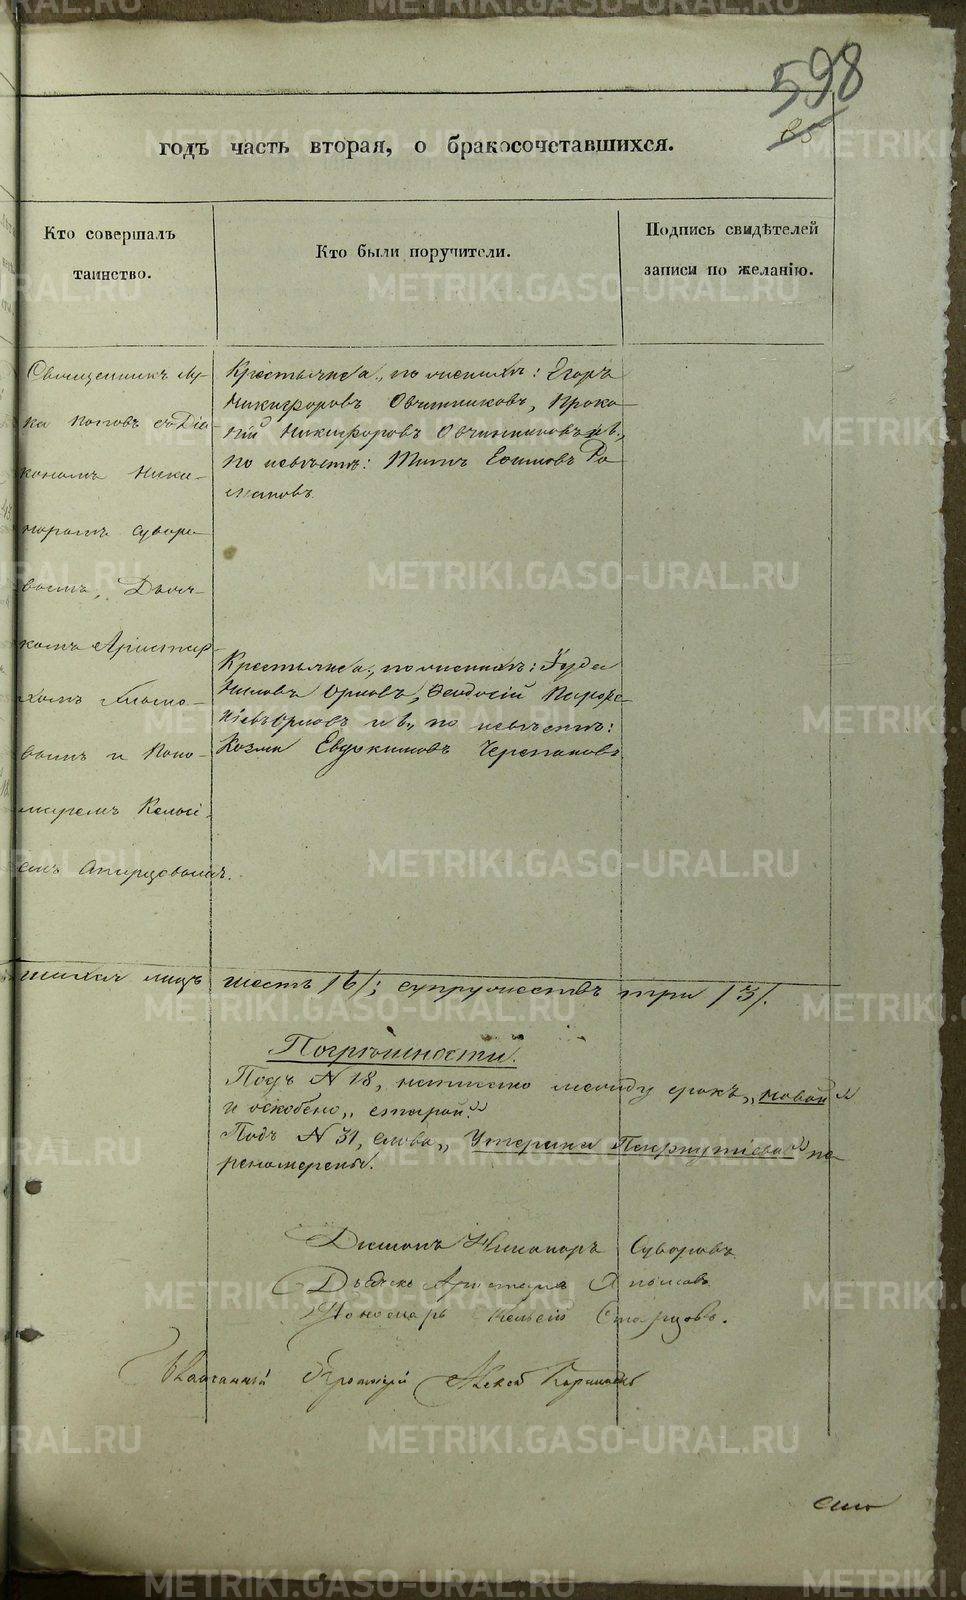 598
85
годъ часть вторая, о бракосочетавшихся.
Кто совершалъ
таинство.
Кто были поручители.
Подпись свидѣтелей
записи по желанію.
Священникъ Лу-
ка Поповъ съ Діа-
кономъ Ника-
норомъ Суворо-
вымъ, Дьяч-
комъ Аристар-
хомъ
вымъ и Поно-
маремъ Кельсі-
емъ Старцовымъ.
Крестьяне, по женихѣ: Егоръ
Никифоровъ Овчинниковъ, Проко-
пій Никифоровъ Овчинниковъ и
по невѣстѣ: Титъ Ефимовъ Ро-
мановъ
Крестьяне, по женихѣ: Іуда
Ниловъ Орловъ, Феодосій
Орловъ и по невѣстѣ:
Козма Евдокимовъ Черепановъ
шихся лицъ шесть /6/; супружествъ три /3/.
Погрѣшности.
Подъ N 18, написано между строкъ „новой“
и оскоблено „старой“
Подъ N 31, слова „ Устерина Пафнутіева “ пе-
реномерены.
Діаконъ Никаноръ Суворовъ
Дьячекъ Аристархъ
Пономарь Кельсій Старцовъ.
Благочинный
METRIKI.GASO-URAL.RU